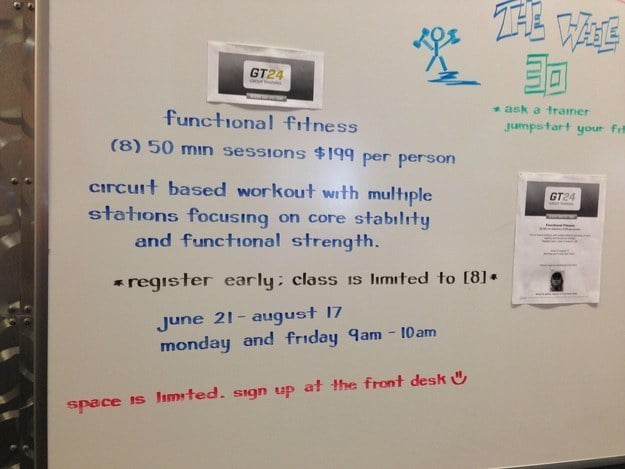 GT24
GROUP TRAINING
functional fitness
(8) 50 min sessions $199 per person
circuit based workout with multiple
stations focusing on core stability
and functional strength.
*register early; class is limited to [8]*
june 21 - august 17
monday and friday 9am - 10am
space is limited. sign up at the front desk
THE WHOLE
30
* ask a trainer
jumpstart your
GT24
Functional Fitness